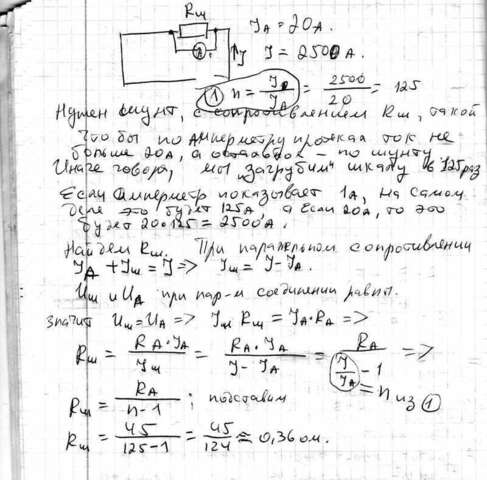 Rш
A
I
I_A = 20А.
I = 2500А.
① n = I/I_A = 2500/20 = 125
Нужен шунт, с сопротивлением Rш, такой
чтобы по амперметру протекал ток не
больше 20А, а остаток - по шунту
Иначе говоря, мы "загрубим" шкалу в 125 раз
Если амперметр показывает 1А, на самом
деле это будет 125А, а если 20А, то это
будет 20·125 = 2500А.
Найдём Rш. При параллельном сопротивлении
I_A + Iш = I => Iш = I - I_A.
Uш и U_A при пар-м соединении равны.
значит Uш = U_A => Iш Rш = I_A·R_A =>
Rш = R_A·I_A/Iш = R_A·I_A/(I - I_A) = R_A/(I/I_A - 1) =>
= n из ①
Rш = R_A/(n-1); подставим
Rш = 45/(125-1) = 45/124 ≈ 0,36 ом.